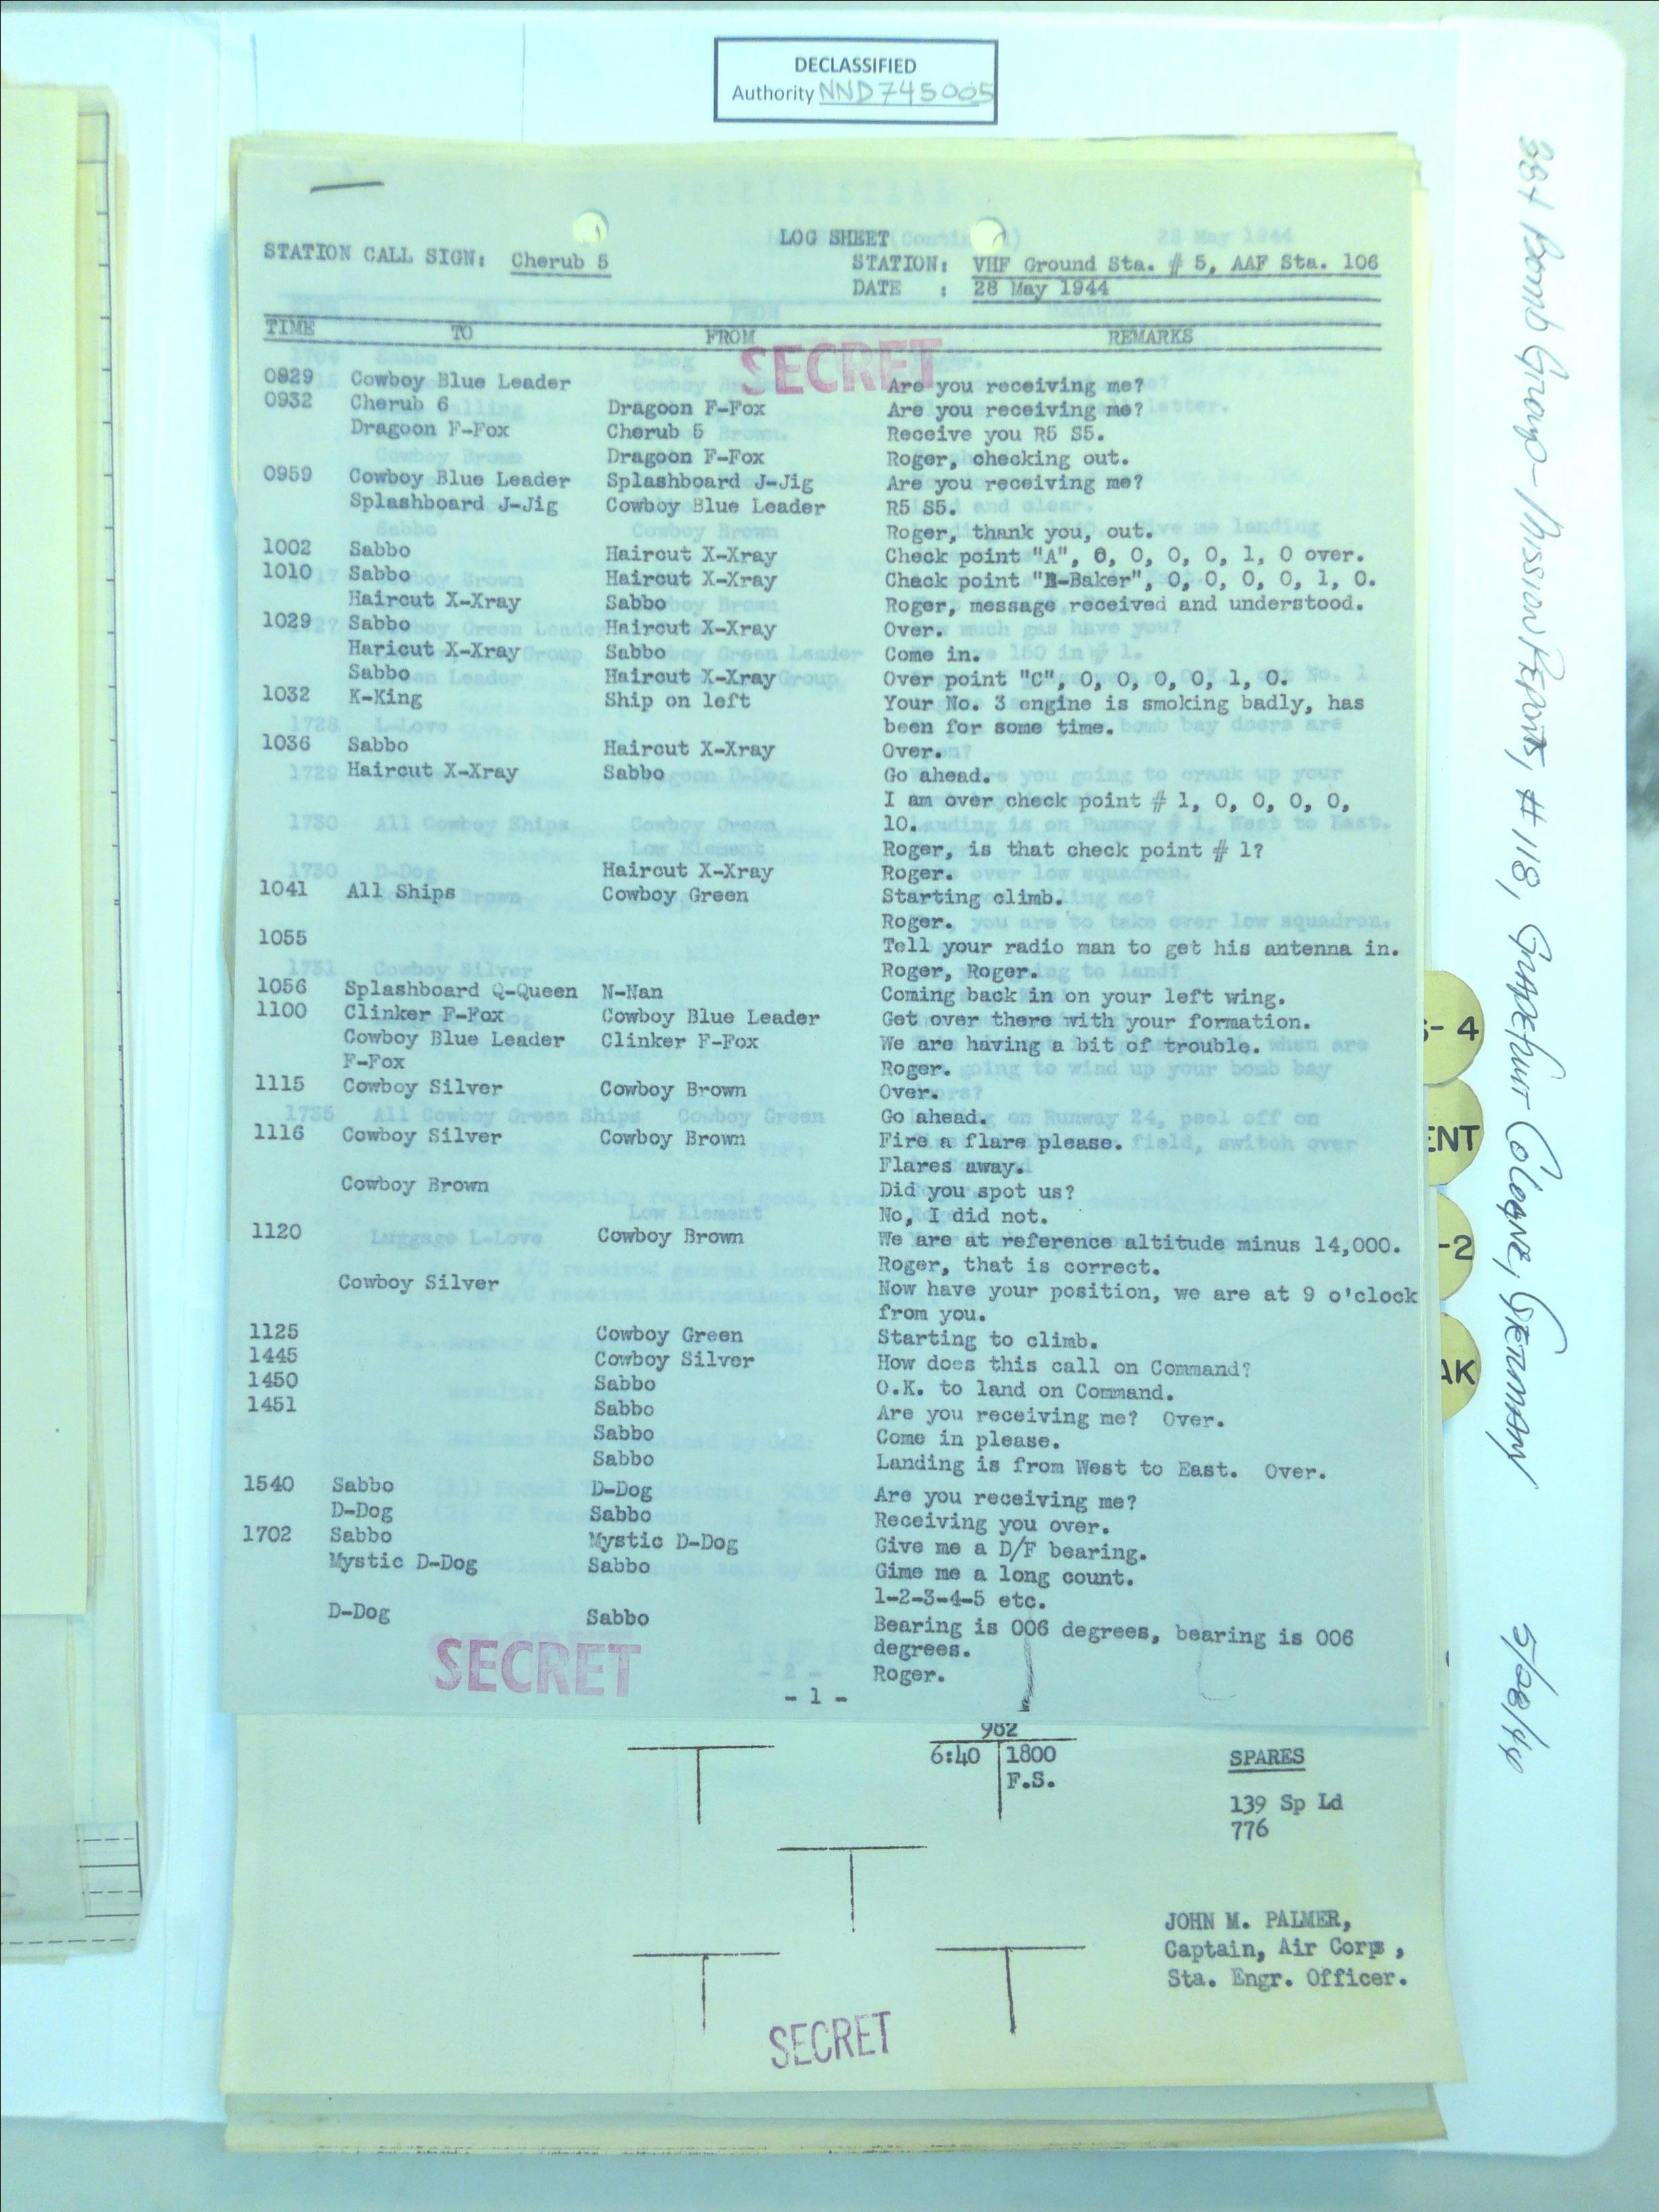 DECLASSIFIED
Authority NND745005
LOG SHEET
STATION CALL SIGN: Cherub 5
STATION: VHF Ground Sta. # 5, AAF Sta. 106
DATE : 28 May 1944
TIME TO FROM REMARKS
SECRET
0829 Cowboy Blue Leader Are you receiving me?
0932 Cherub 6 Dragoon F-Fox Are you receiving me?
Dragoon F-Fox Cherub 5 Receive you R5 S5.
Dragoon F-Fox Roger, checking out.
0959 Cowboy Blue Leader Splashboard J-Jig Are you receiving me?
Splashboard J-Jig Cowboy Blue Leader R5 S5.
Roger, thank you, out.
1002 Sabbo Haircut X-Xray Check point "A", 0, 0, 0, 0, 1, 0 over.
1010 Sabbo Haircut X-Xray Check point "B-Baker", 0, 0, 0, 0, 1, 0.
Haircut X-Xray Sabbo Roger, message received and understood.
1029 Sabbo Haircut X-Xray Over.
Haricut X-Xray Sabbo Come in.
Sabbo Haircut X-Xray Over point "C", 0, 0, 0, 0, 1, 0.
1032 K-King Ship on left Your No. 3 engine is smoking badly, has
been for some time.
1036 Sabbo Haircut X-Xray Over.
Haircut X-Xray Sabbo Go ahead.
I am over check point # 1, 0, 0, 0, 0,
10.
Roger, is that check point # 1?
Haircut X-Xray Roger.
1041 All Ships Cowboy Green Starting climb.
Roger.
1055 Tell your radio man to get his antenna in.
Roger, Roger.
1056 Splashboard Q-Queen N-Nan Coming back in on your left wing.
1100 Clinker F-Fox Cowboy Blue Leader Get over there with your formation.
Cowboy Blue Leader Clinker F-Fox We are having a bit of trouble.
F-Fox Roger.
1115 Cowboy Silver Cowboy Brown Over.
Go ahead.
1116 Cowboy Silver Cowboy Brown Fire a flare please.
Flares away.
Cowboy Brown Did you spot us?
No, I did not.
1120 Cowboy Brown We are at reference altitude minus 14,000.
Roger, that is correct.
Cowboy Silver Now have your position, we are at 9 o'clock
from you.
1125 Cowboy Green Starting to climb.
1445 Cowboy Silver How does this call on Command?
1450 Sabbo O.K. to land on Command.
1451 Sabbo Are you receiving me? Over.
Sabbo Come in please.
Sabbo Landing is from West to East. Over.
1540 Sabbo D-Dog Are you receiving me?
D-Dog Sabbo Receiving you over.
1702 Sabbo Mystic D-Dog Give me a D/F bearing.
Mystic D-Dog Sabbo Gime me a long count.
1-2-3-4-5 etc.
D-Dog Sabbo Bearing is 006 degrees, bearing is 006
degrees.
Roger.
SECRET
- 1 -
982
6:40 1800
F.S.
SPARES
139 Sp Ld
776
JOHN M. PALMER,
Captain, Air Corps,
Sta. Engr. Officer.
SECRET
- 4
ENT
-2
AK
381 Bomb Group - Mission Reports, #118, Grapefruit Cologne, Germany 5/28/44